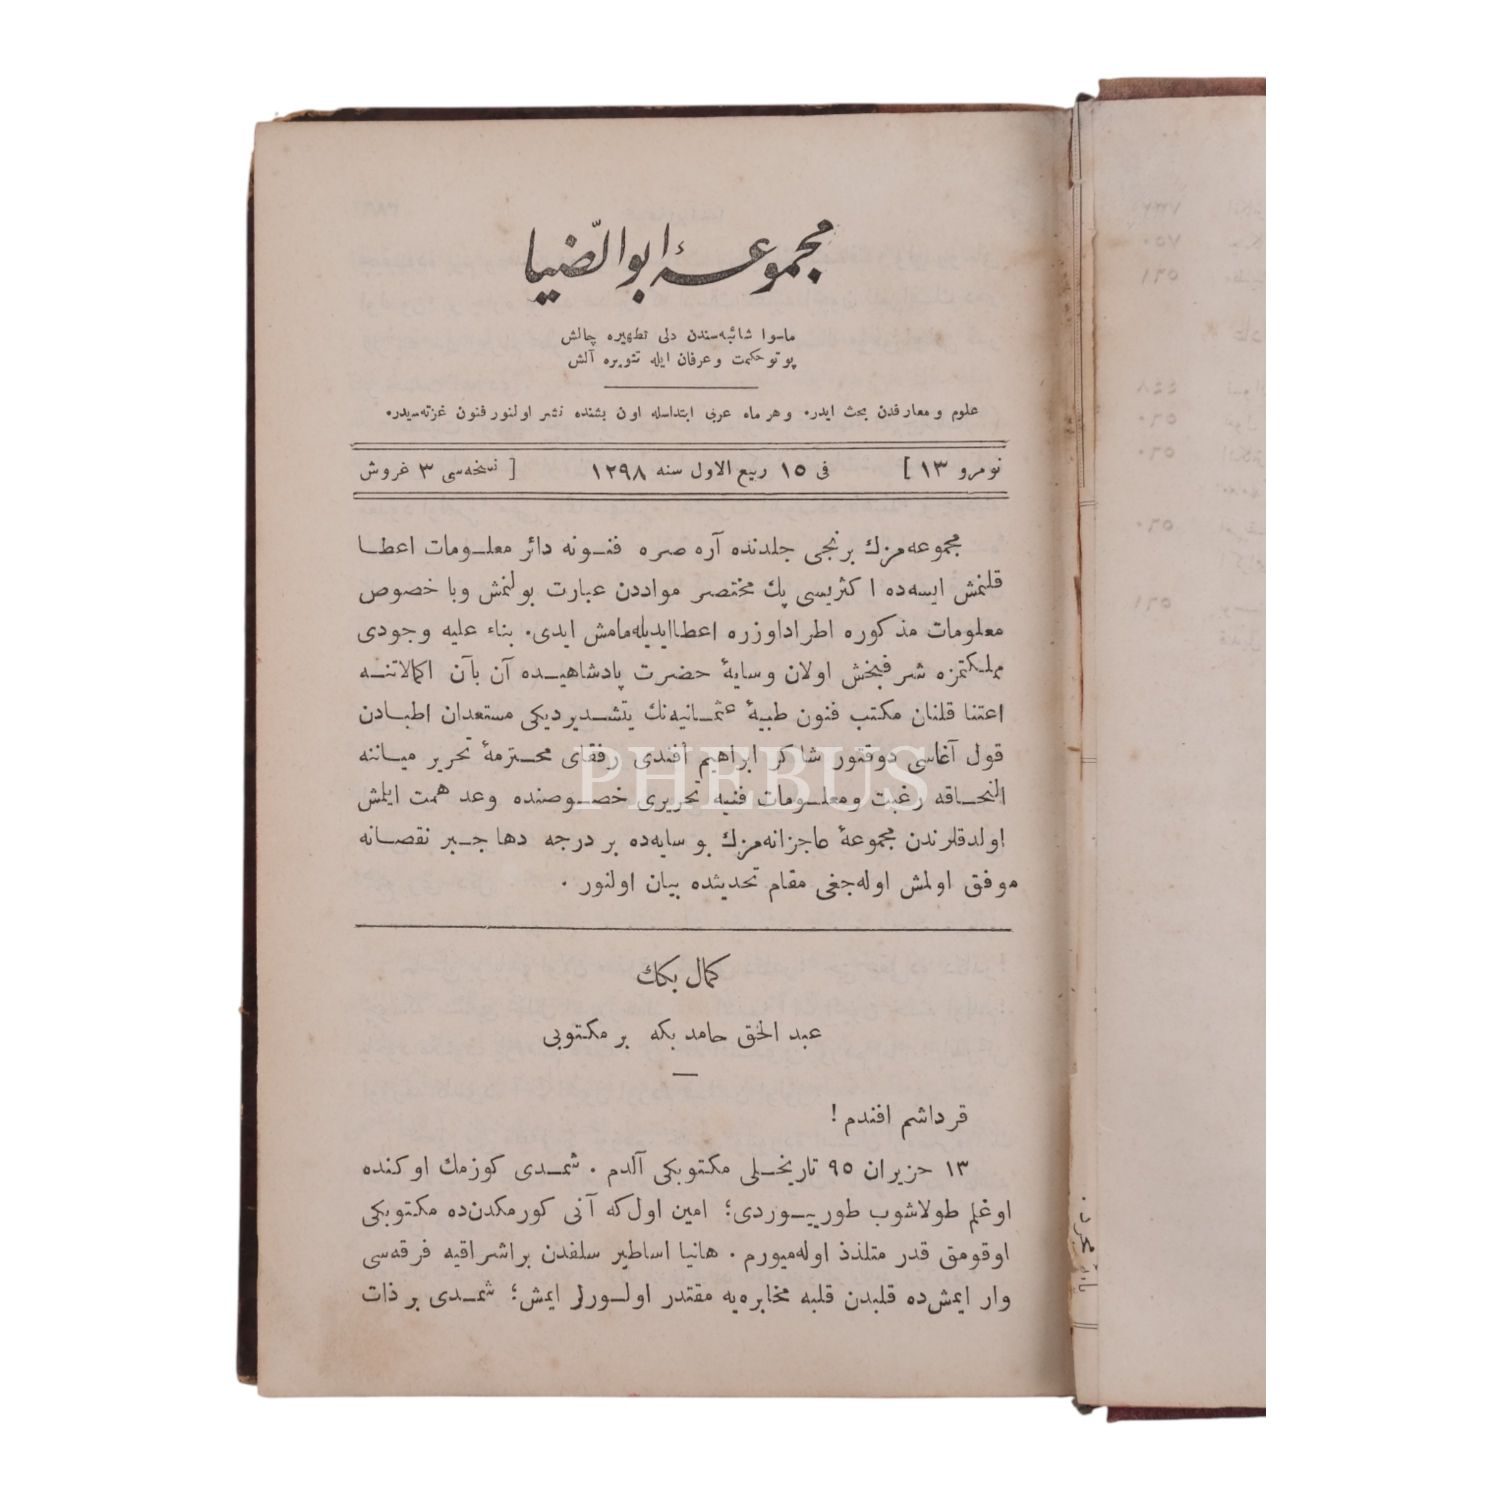 مجموعهٔ ابوالضّيا
ماسوا شائبه‌سندن دلى تطهيره چالش
پرتو حكمت وعرفان ايله تنويره آلش
علوم و معارفدن بحث ايدر. وهر ماه عربى ابتداسله اون بشنده نشر اولنور فنون غزته‌سيدر.
نومرو ١٣ ] فى ١٥ ربيع الاول سنه ١٢٩٨ [ نسخه‌سى ٣ غروش
مجموعه‌مزك برنجى جلدنده آره صره فنونه دائر معلومات اعطا
قلنمش ايسه‌ده اكثريسى پك مختصر مواددن عبارت بولنمش وبا خصوص
معلومات مذكوره اطراد اوزره اعطا ايديله‌مامش ايدى. بناء عليه وجودى
مملكتمزه شرفبخش اولان وسايهٔ حضرت پادشاهيده آن بآن اكمالاتنه
اعتنا قلنان مكتب فنون طبيهٔ عثمانيه‌نك يتشديرديكى مستعدان اطبادن
قول آغاسى دوقتور شاكر ابراهيم افندى رفقاى محترمهٔ تحرير ميانه
التحاقه رغبت ومعلومات فنيه تحريرى خصوصنده وعد همت ايلمش
اولدقلرندن مجموعهٔ عاجزانه‌مزك بو سايه‌ده بر درجه دها جبر نقصانه
موفق اولمش اوله‌جغى مقام تحديثده بيان اولنور .
كمال بكك
عبد الحق حامد بكه بر مكتوبى
قرداشم افندم !
١٣ حزيران ٩٥ تاريخلى مكتوبكى آلدم . شمدى كوزمك اوكنده
اوغلم طولاشوب طورييوردى؛ امين اول‌كه آنى كورمكدن‌ده مكتوبكى
اوقومق قدر متلذذ اوله‌ميورم . هانيا اساطير سلفدن براشراقيه فرقه‌سى
وار ايمش‌ده قلبدن قلبه مخابره‌يه مقتدر اولورلر ايمش؛ شمدى بر ذات
PHEBUS